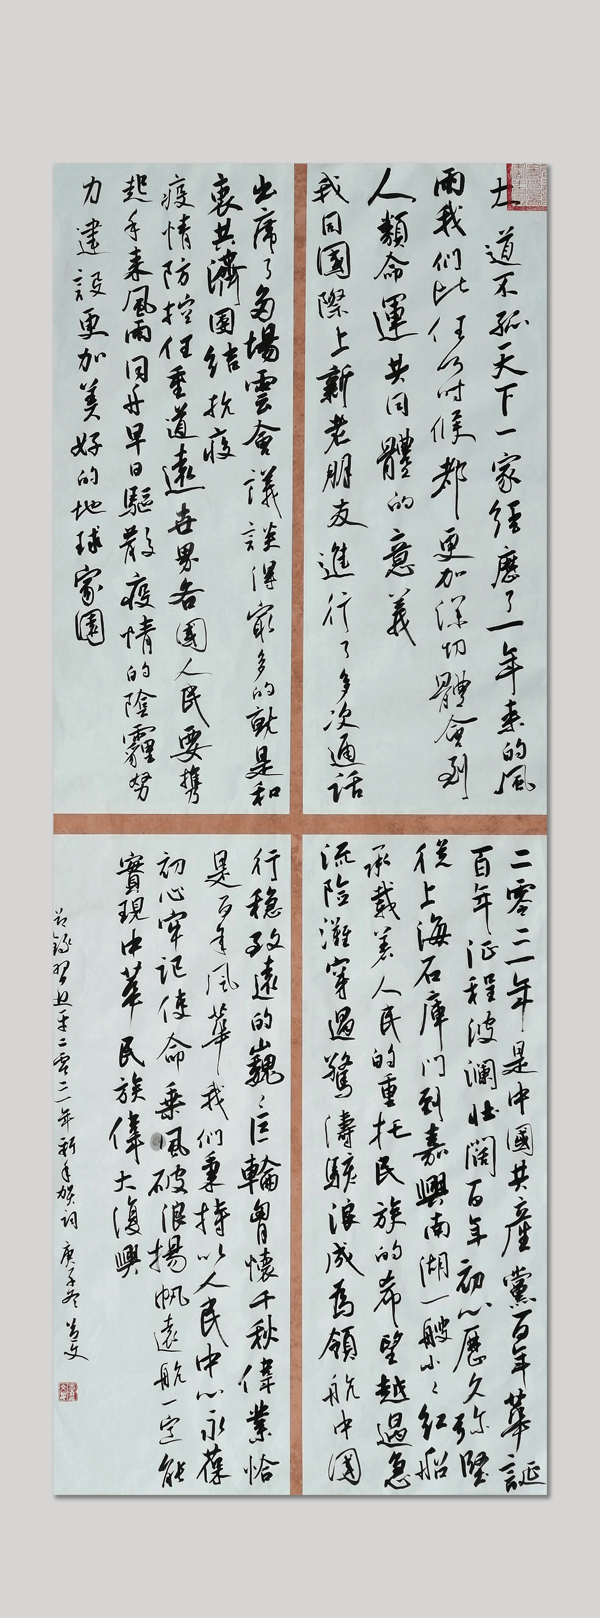 大道不孤天下一家經歷了一年來的風
雨我們比任何時候都更加深切體會到
人類命運共同體的意義
我同國際上新老朋友進行了多次通話
出席了多場雲會議談得最多的就是和
衷共濟團結抗疫
疫情防控任重道遠世界各國人民要攜
起手來風雨同舟早日驅散疫情的陰霾努
力建設更加美好的地球家園
二零二一年是中國共産黨百年華誕
百年征程波瀾壯闊百年初心歷久弥堅
從上海石庫門到嘉興南湖一艘小〻紅船
承載着人民的重托民族的希望越過急
流險灘穿過驚濤駭浪成爲領航中國
行穩致遠的巍〻巨輪胷懷千秋偉業恰
是百年風華我們秉持以人民中心永葆
初心牢記使命乘風破浪揚帆遠航一定能
實現中華民族偉大復興
節錄習近平二零二一年新年賀詞庚子冬